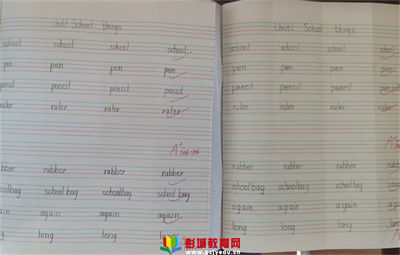 Unit1 School things
school school school school
pen pen pen pen
pencil pencil pencil pencil
ruler ruler ruler ruler
A+
rubber rubber rubber rubber
school bag school bag school bag school bag
again again again again
long long long long
Unit1 School things
school school school school
pen pen pen pen
pencil pencil pencil pencil
ruler ruler ruler ruler
rubber rubber rubber rubber
school bag school bag school bag school bag
again again again again
long long long long
彭城教育网
www.pcjyedu.cn